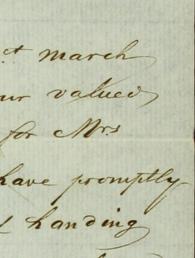 st march
our valued
for Mrs
have promptly
handing